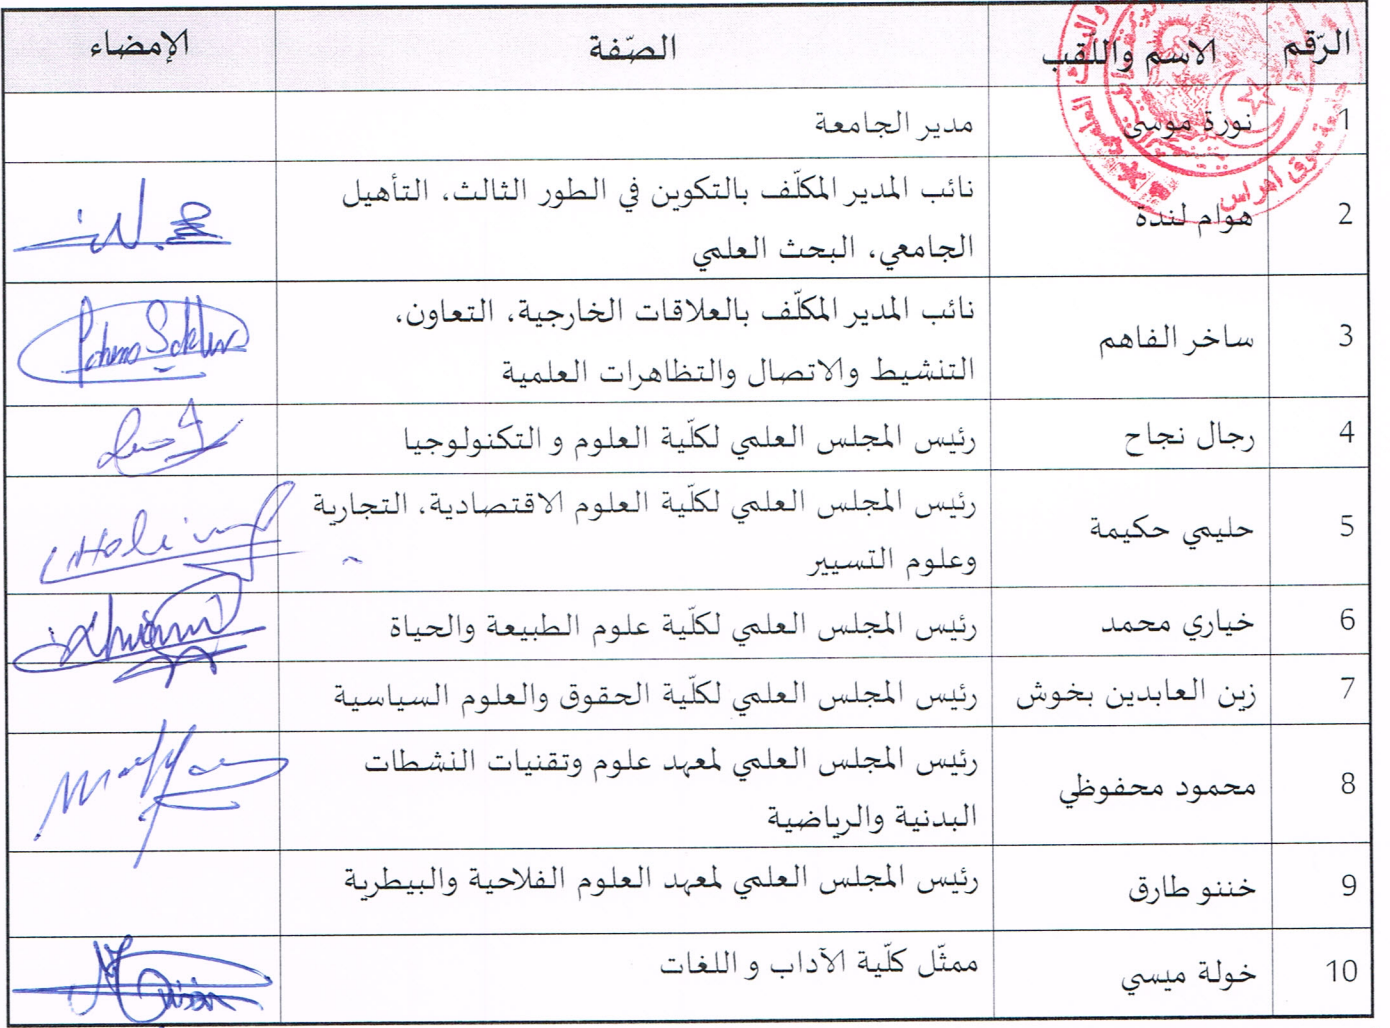 الرّقم الاسم واللّقب الصّفة الإمضاء
1 نورة موسى مدير الجامعة
2 هوام لندة نائب المدير المكلّف بالتكوين في الطور الثالث، التأهيل
الجامعي، البحث العلمي
3 ساخر الفاهم نائب المدير المكلّف بالعلاقات الخارجية، التعاون،
التنشيط والاتصال والتظاهرات العلمية
4 رجال نجاح رئيس المجلس العلمي لكلّية العلوم و التكنولوجيا
5 حليمي حكيمة رئيس المجلس العلمي لكلّية العلوم الاقتصادية، التجارية
وعلوم التسيير
6 خياري محمد رئيس المجلس العلمي لكلّية علوم الطبيعة والحياة
7 زين العابدين بخوش رئيس المجلس العلمي لكلّية الحقوق والعلوم السياسية
8 محمود محفوظي رئيس المجلس العلمي لمعهد علوم وتقنيات النشطات
البدنية والرياضية
9 خننو طارق رئيس المجلس العلمي لمعهد العلوم الفلاحية والبيطرية
10 خولة ميسي ممثّل كلّية الآداب و اللغات
جامعة سوق أهراس